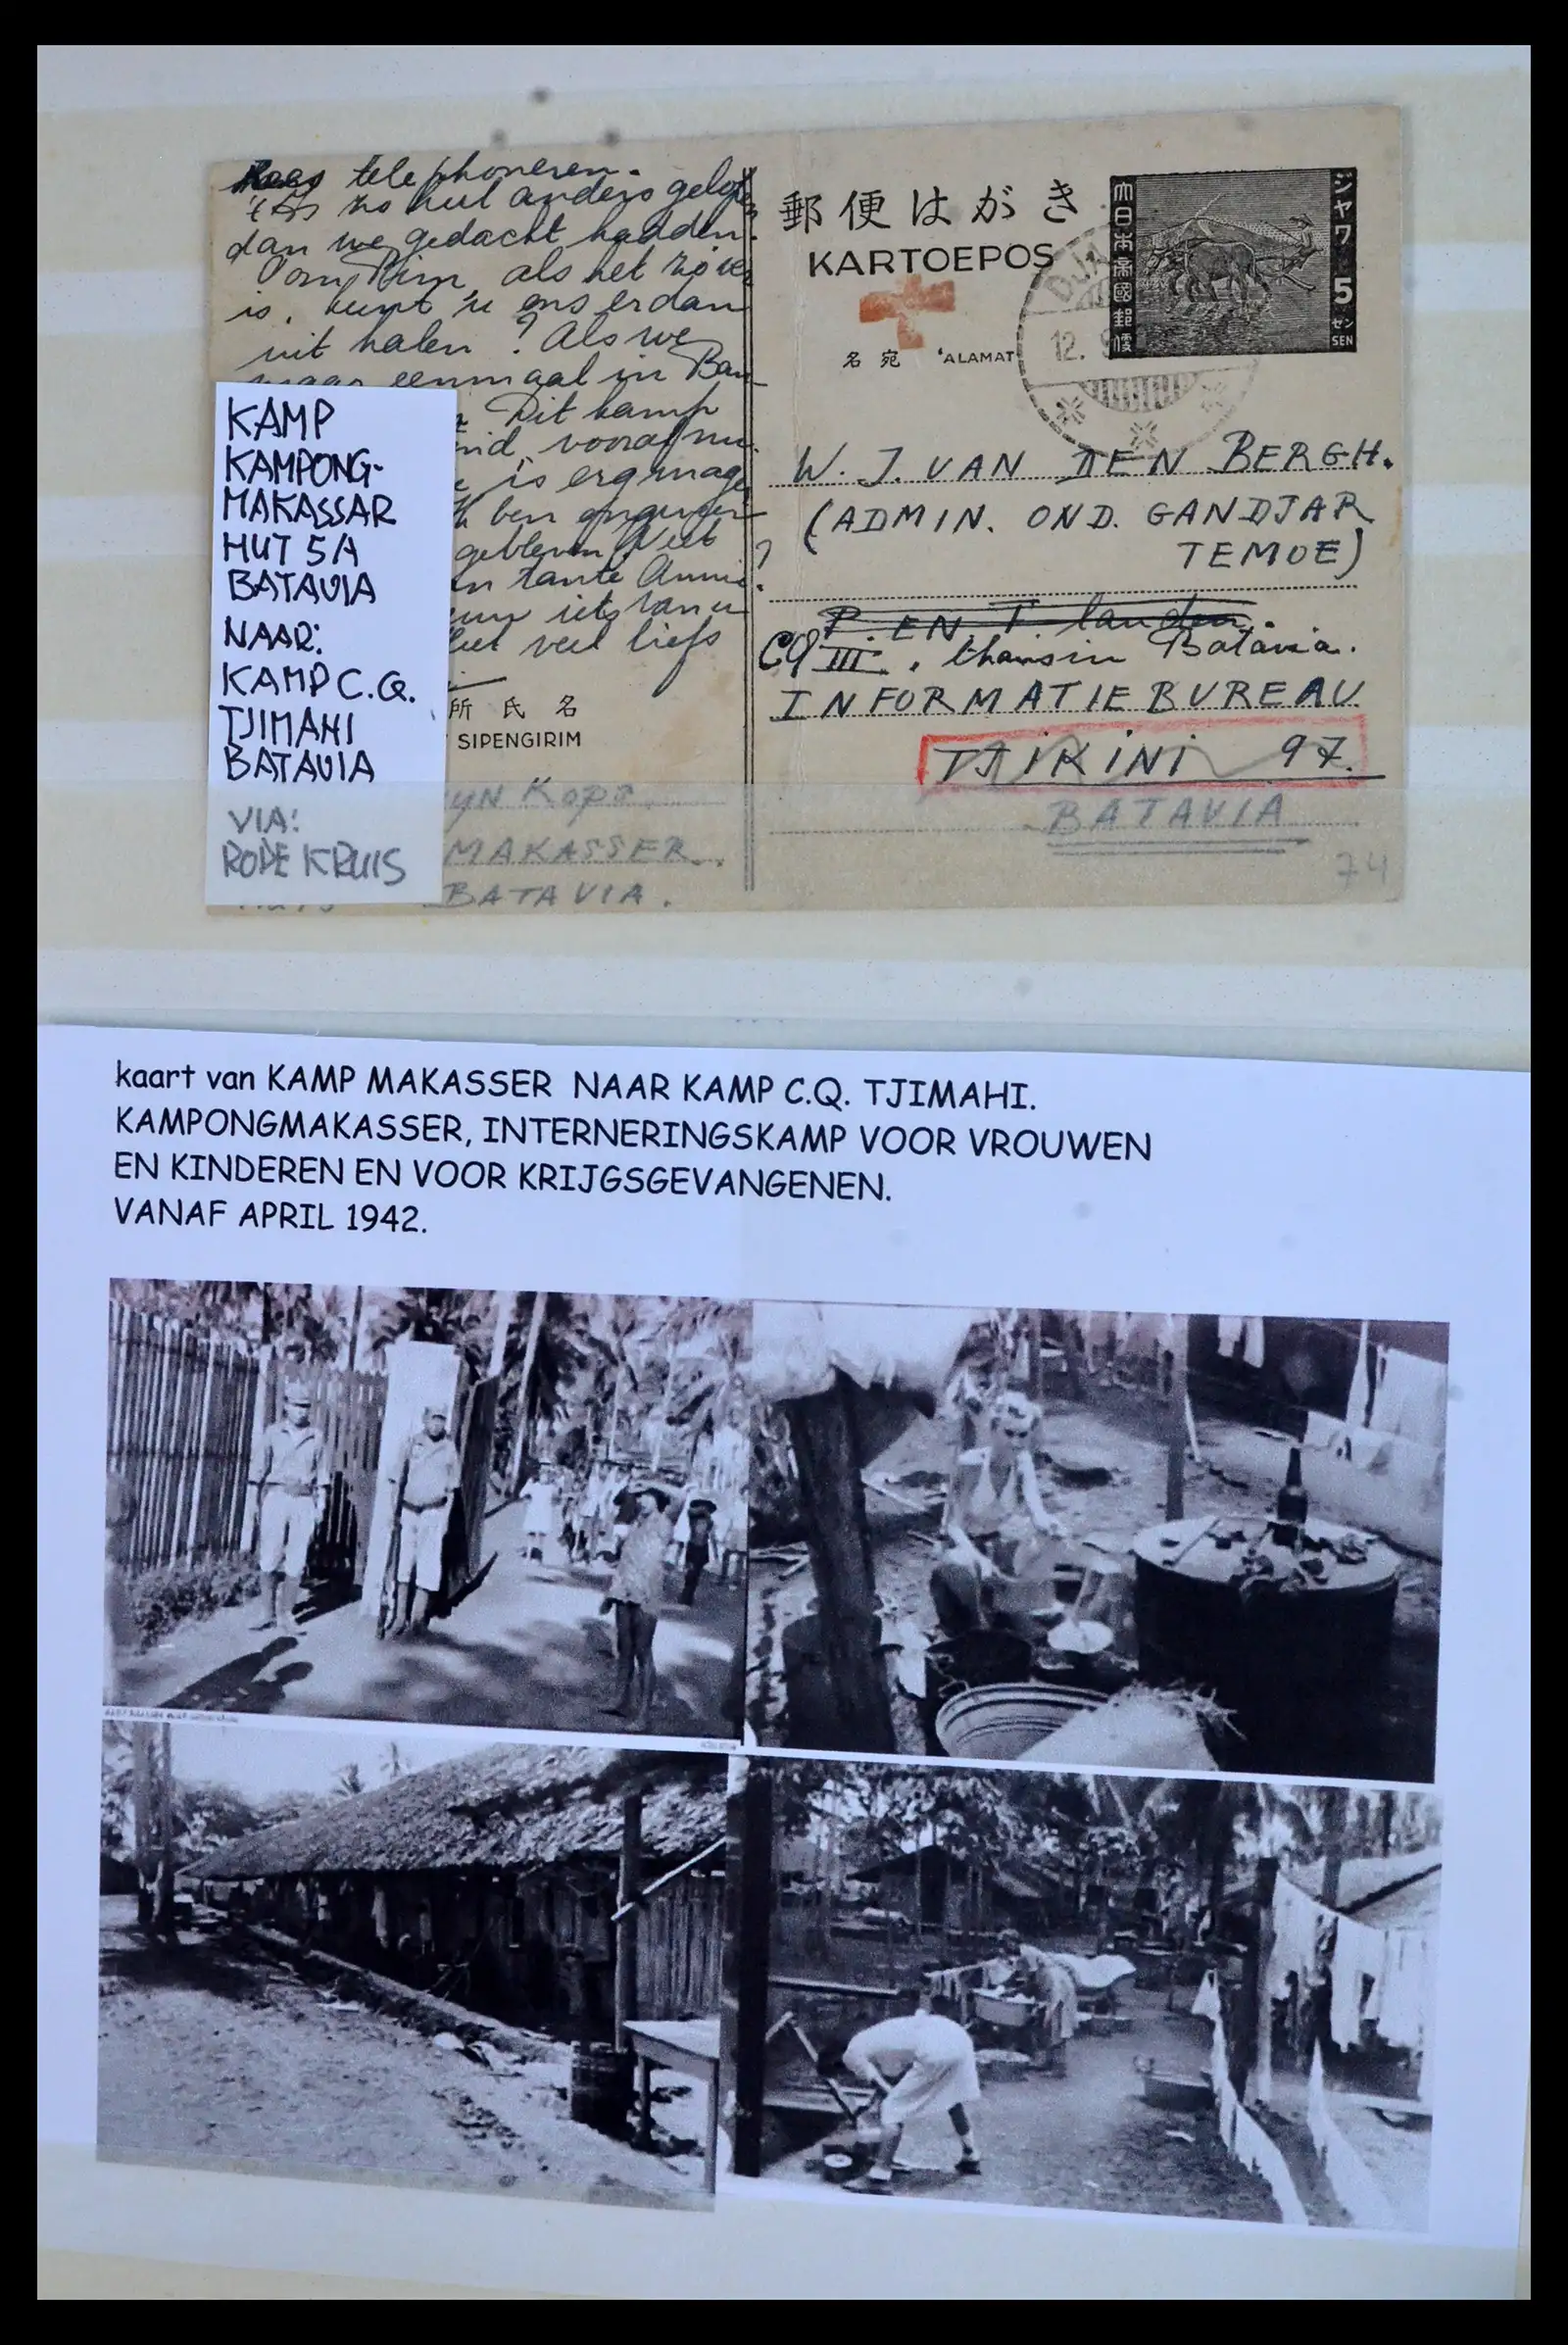 telephoneren.
't is zo heel anders gelopen
dan we gedacht hadden.
Oom Wim, als het zover
is, kunt u ons er dan
uit halen? Als we
maar eenmaal in Ban-
Dit kamp
vooral nu.
is erg mager
ben ongeveer
gebleven. Niet
en tante Annie?
iets van u
veel liefs
所 氏 名
SIPENGIRIM
YN KOPS
MAKASSER.
BATAVIA.
KAMP
KAMPONG-
MAKASSAR
HUT 5/A
BATAVIA
NAAR:
KAMP C.Q.
TJIMAHI
BATAVIA
VIA:
RODE KRUIS
郵便はがき
KARTOEPOS
名 宛 'ALAMAT
大日本帝國郵便
ジャワ
5
セン
SEN
DJA
12. 9
W. J. VAN DEN BERGH.
(ADMIN. OND. GANDJAR
TEMOE)
P. EN T. landen.
CQ III. thans in Batavia.
INFORMATIEBUREAU
TJIKINI 97.
BATAVIA
74
kaart van KAMP MAKASSER NAAR KAMP C.Q. TJIMAHI.
KAMPONGMAKASSER, INTERNERINGSKAMP VOOR VROUWEN
EN KINDEREN EN VOOR KRIJGSGEVANGENEN.
VANAF APRIL 1942.